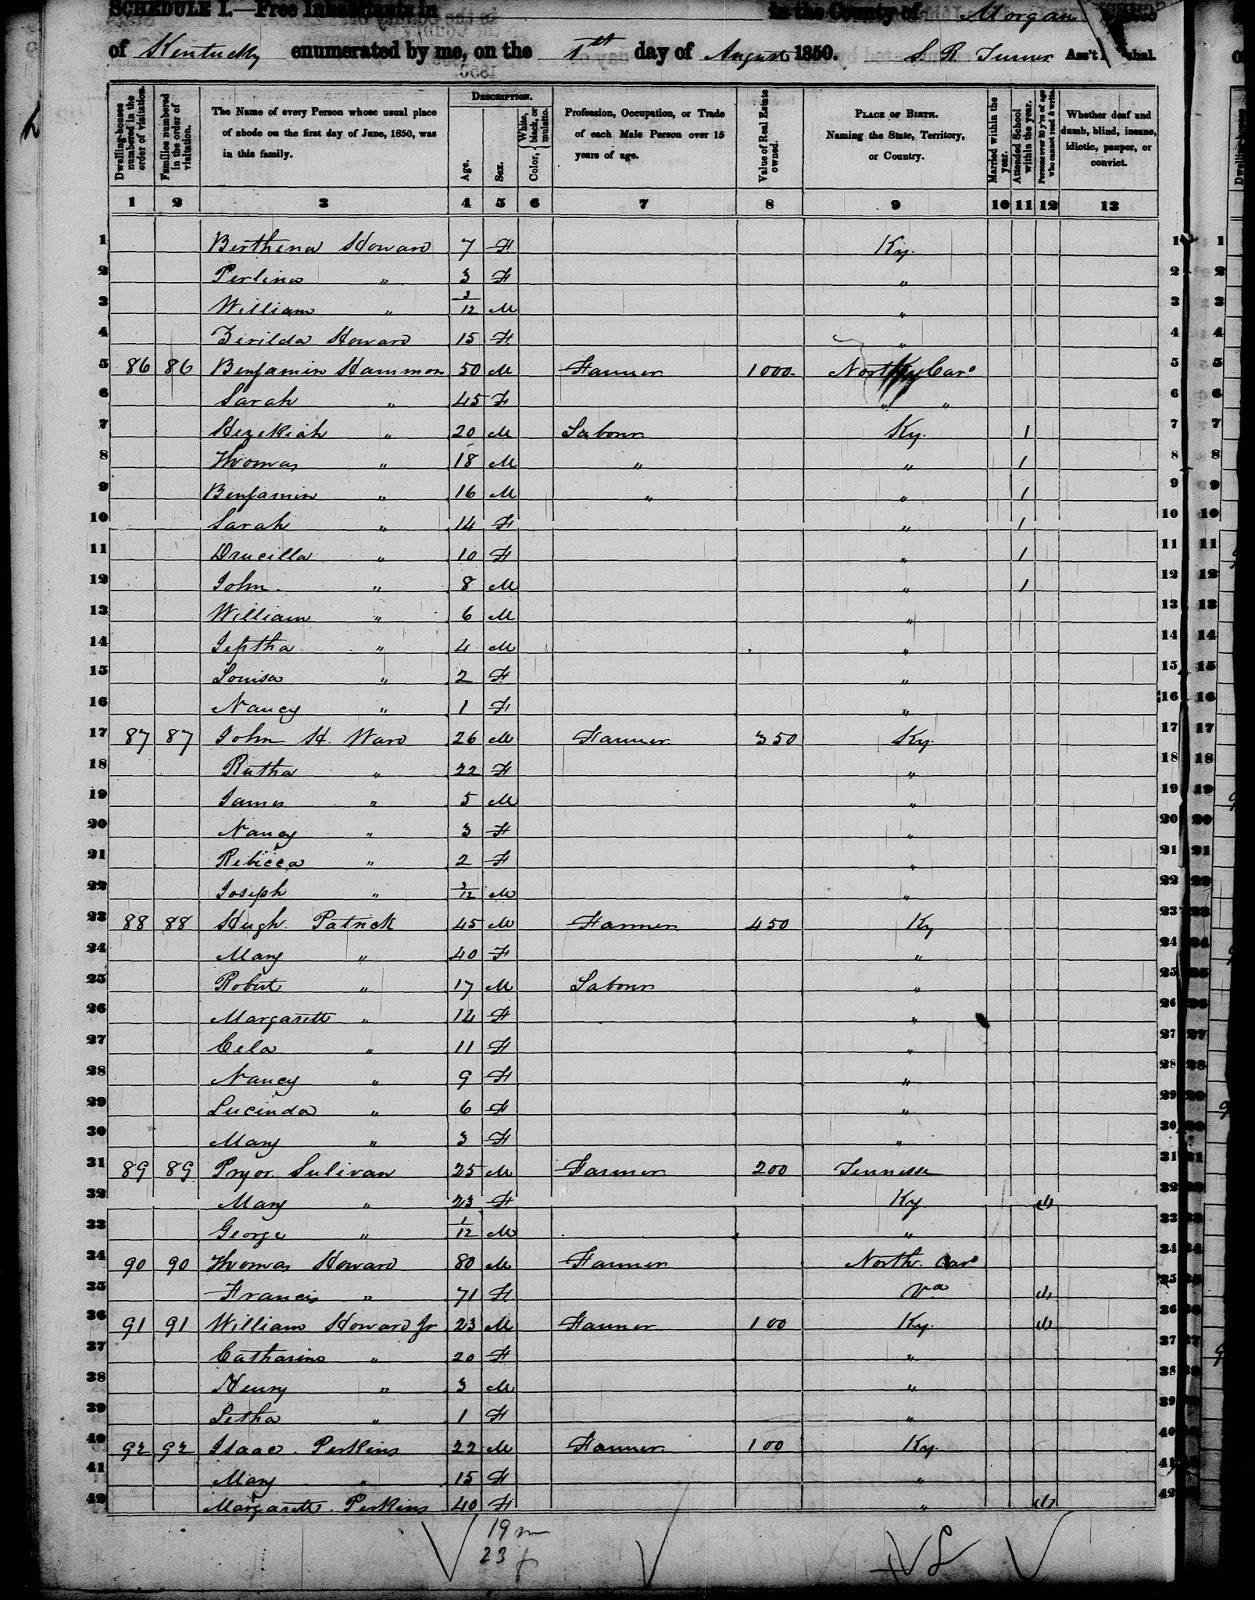 SCHEDULE I.—Free Inhabitants in in the County of Morgan
of Kentucky enumerated by me, on the 1st day of August 1850. S R Turner Ass't Marshal.
Dwelling-houses numbered in the order of visitation. Families numbered in the order of visitation. The Name of every Person whose usual place of abode on the first day of June, 1850, was in this family. Description. Age. Sex. Color, White, black, or mulatto. Profession, Occupation, or Trade of each Male Person over 15 years of age. Value of Real Estate owned. Place of Birth. Naming the State, Territory, or Country. Married within the year. Attended School within the year. Persons over 20 y'rs of age who cannot read & write. Whether deaf and dumb, blind, insane, idiotic, pauper, or convict.
1 2 3 4 5 6 7 8 9 10 11 12 13
1 Berthena Howard 7 F Ky. 1
2 Perlina " 3 F " 2
3 William " 3/12 M " 3
4 Zirilda Howard 15 F " 4
5 86 86 Benjamin Hammon 50 M Farmer 1000 North Car° 5
6 Sarah " 45 F " " 6
7 Hezekiah " 20 M Labour Ky. 1 7
8 Thomas " 18 M " " 1 8
9 Benjamin " 16 M " " 1 9
10 Sarah " 14 F " 1 10
11 Drucilla " 10 F " 1 11
12 John " 8 M " 1 12
13 William " 6 M " 13
14 Jeptha " 4 M " 14
15 Louisa " 2 F " 15
16 Nancy " 1 F " 16
17 87 87 John H. Ward 26 M Farmer 350 Ky. 17
18 Rutha " 22 F " 18
19 James " 5 M " 19
20 Nancy " 3 F " 20
21 Rebicca " 2 F " 21
22 Joseph " 3/12 M " 22
23 88 88 Hugh Patrick 45 M Farmer 450 Ky 23
24 Mary " 40 F " 24
25 Robert " 17 M Labour " 25
26 Margarett " 12 F " 26
27 Cela " 11 F " 27
28 Nancy " 9 F " 28
29 Lucinda " 6 F " 29
30 Mary " 3 F " 30
31 89 89 Pryor Sulivan 25 M Farmer 200 Tennesse 31
32 Mary " 23 F Ky 32
33 George " 1/12 M " 33
34 90 90 Thomas Howard 80 M Farmer North Car° 34
35 Francis " 71 F Va 35
36 91 91 William Howard Jr 23 M Farmer 100 Ky. 36
37 Catharine " 20 F " 37
38 Henry " 3 M " 38
39 Letha " 1 F " 39
40 92 92 Isaac Perkins 22 M Farmer 100 Ky. 40
41 Mary " 15 F " 41
42 Margarett Perkins 40 F " 42
19 m
23 f